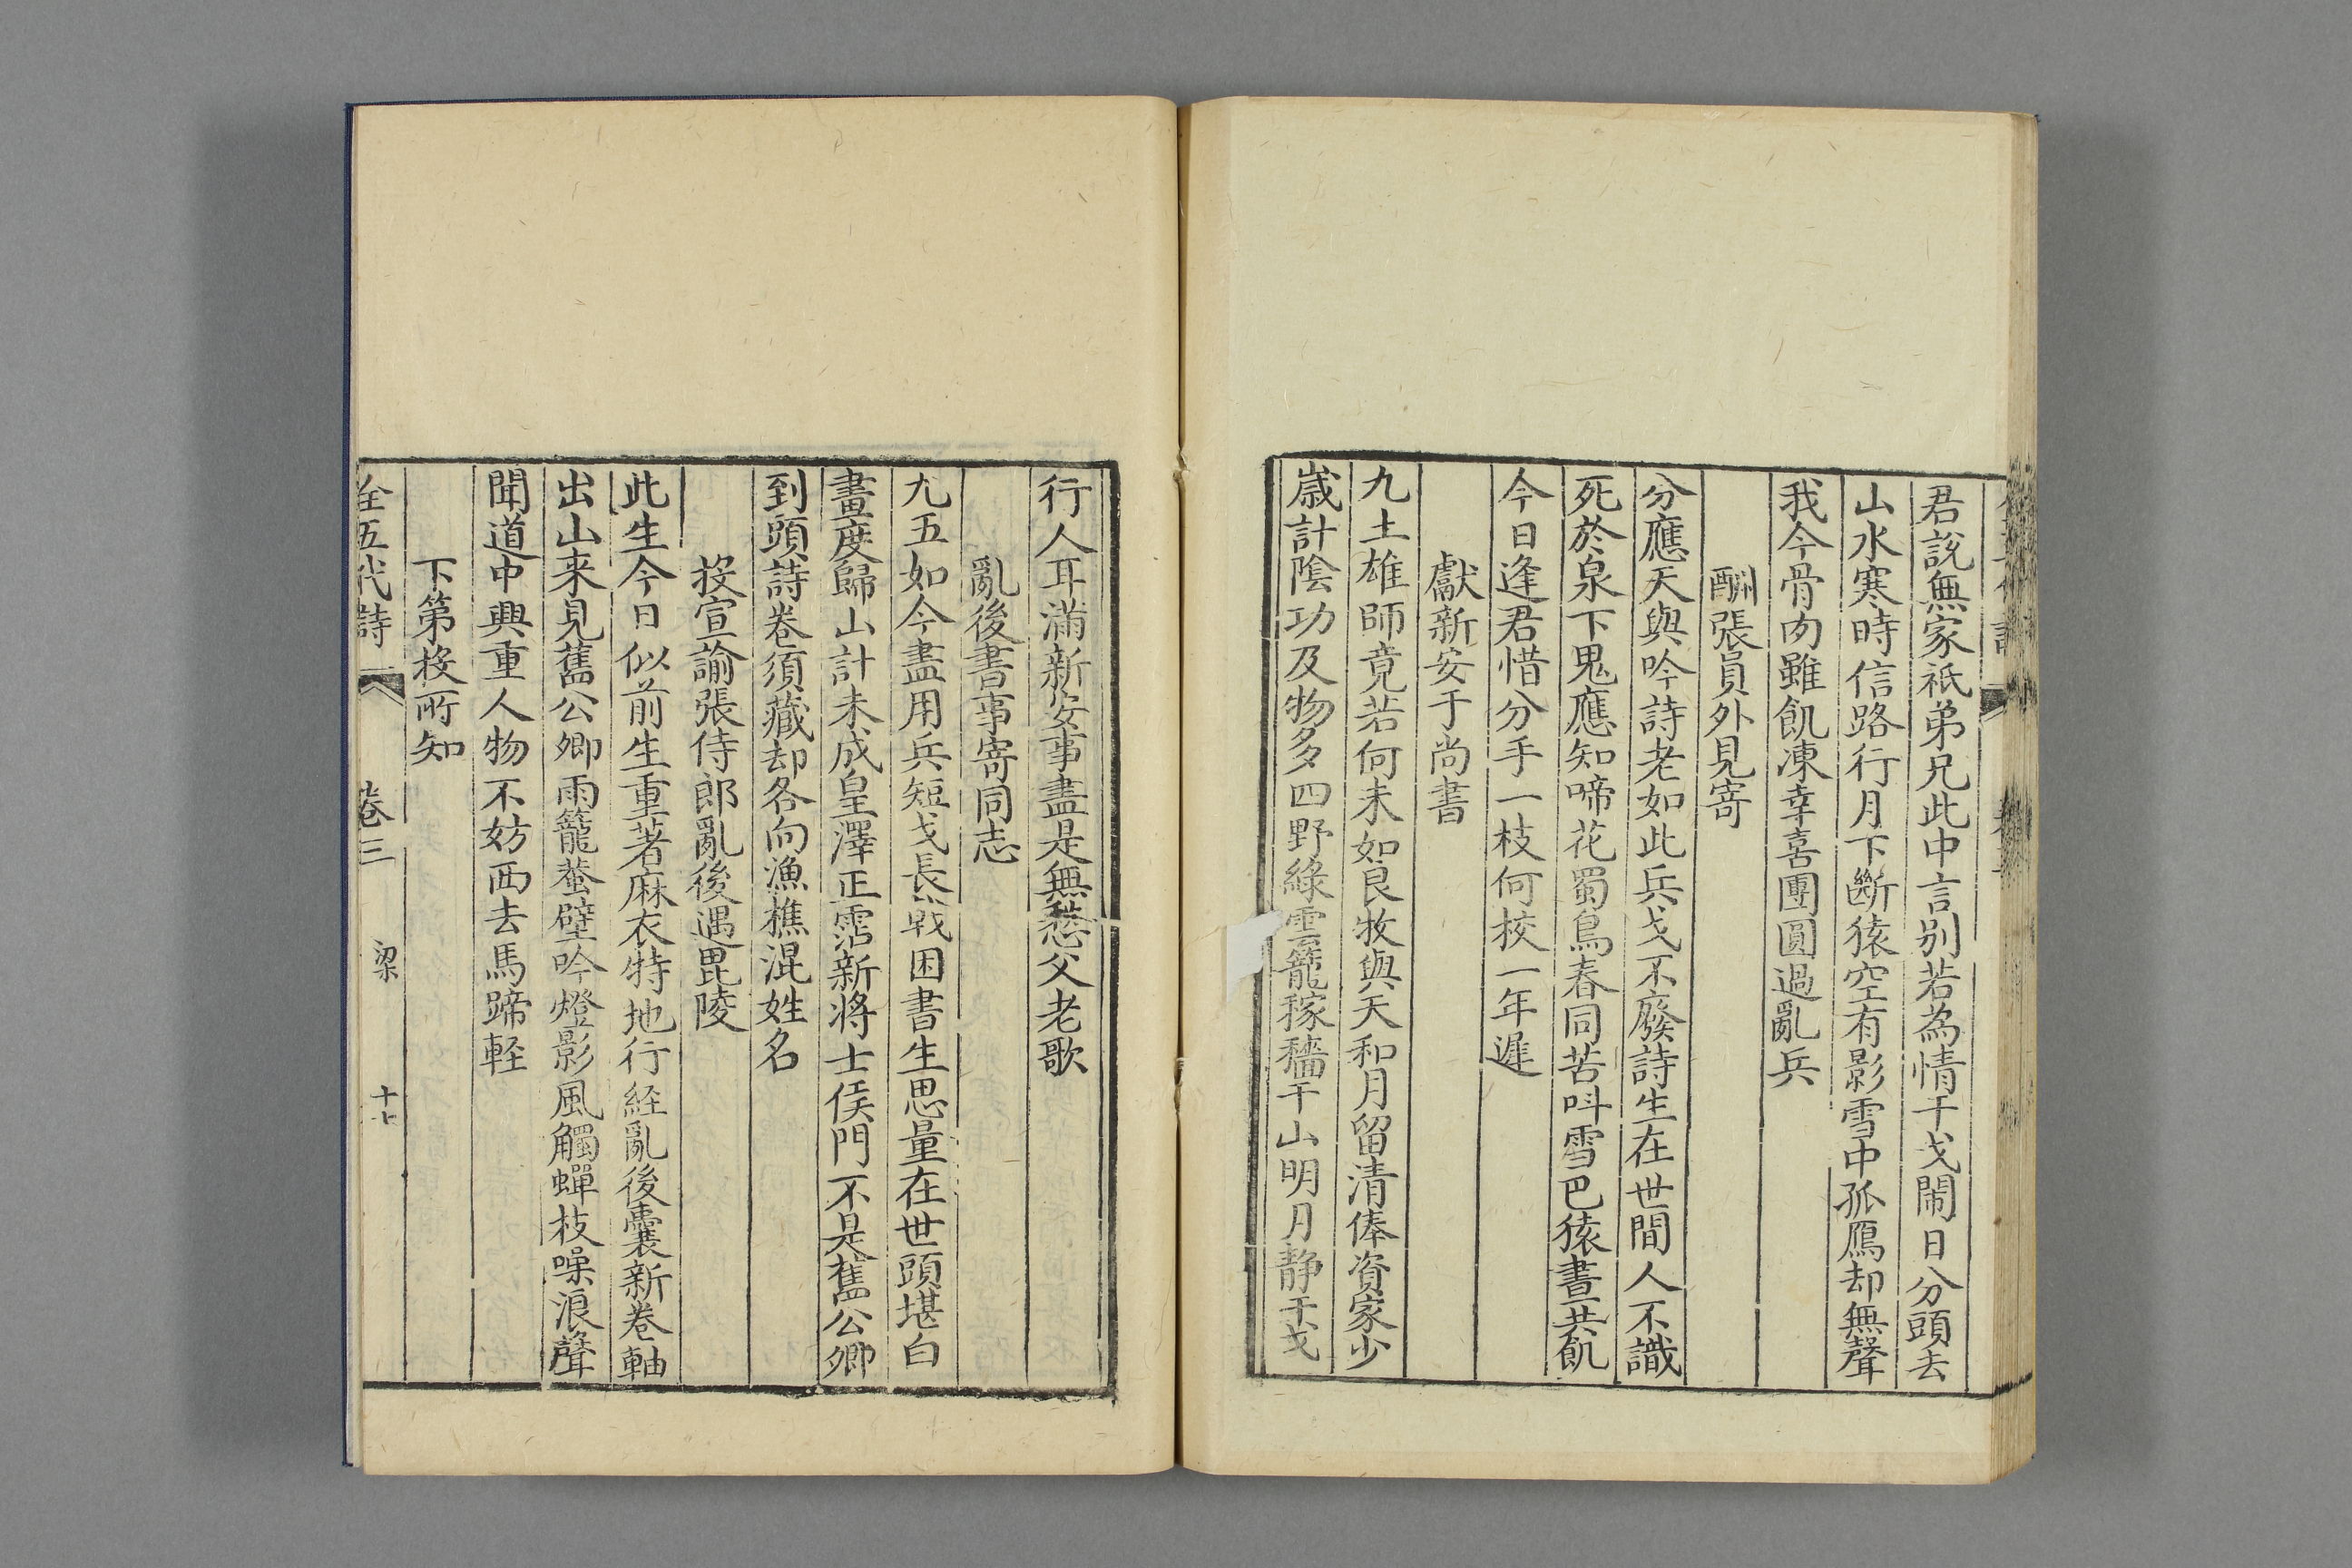 君說無家祇弟兄此中言别若為情干戈鬧日分頭去
山水寒時信路行月下斷猿空有影雪中孤鴈却無聲
我今骨肉雖飢凍幸喜團圓過亂兵
酬張員外見寄
分應天與吟詩老如此兵戈不廢詩生在世間人不識
死於泉下鬼應知啼花蜀鳥春同苦呌雪巴猿晝共飢
今日逢君惜分手一枝何校一年遲
獻新安于尚書
九土雄師竟若何未如良牧與天和月留清俸資家少
歲計陰功及物多四野綠雲籠稼穡千山明月静干戈
行人耳滿新安事盡是無愁父老歌
亂後書事寄同志
九五如今盡用兵短戈長戟困書生思量在世頭堪白
畫度歸山計未成皇澤正霑新將士侯門不是舊公卿
到頭詩卷須藏却各向漁樵混姓名
投宣諭張侍郎亂後遇毘陵
此生今日似前生重著麻衣特地行経亂後囊新卷軸
出山来見舊公卿雨籠蛬壁吟燈影風觸蟬枝噪浪聲
聞道中興重人物不妨西去馬蹄輊
下第投所知
全五代詩 卷三 梁 十七